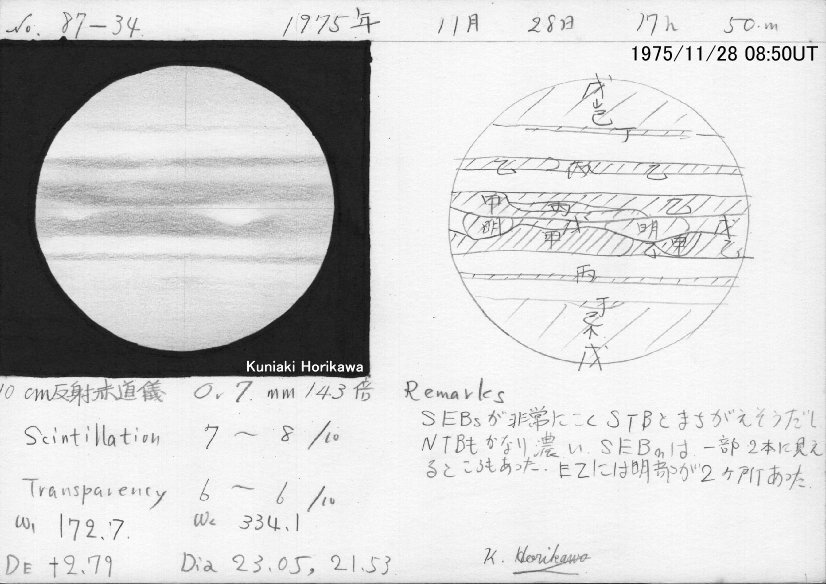 No. 87-34. 1975年 11月 28日 17h 50.m
1975/11/28 08:50UT
戊
己
丁
乙 丙 乙
甲 丙 乙
明 戊 明 戊
甲 乙 甲 乙
丙
丁
己
戊
Kuniaki Horikawa
10cm反射赤道儀 Or 7. mm 143倍
Scintillation 7 ~ 8 /10
Transparency 6 ~ 6 /10
ω1 172.7. ω2 334.1
DE +2.79 Dia 23.05, 21.53
Remarks
SEBsが非常にこくSTBとまちがえそうだし
NTBもかなり濃い. SEBnは、一部2本に見え
るところもあった. EZには明部が2ヶ所あった.
K. Horikawa